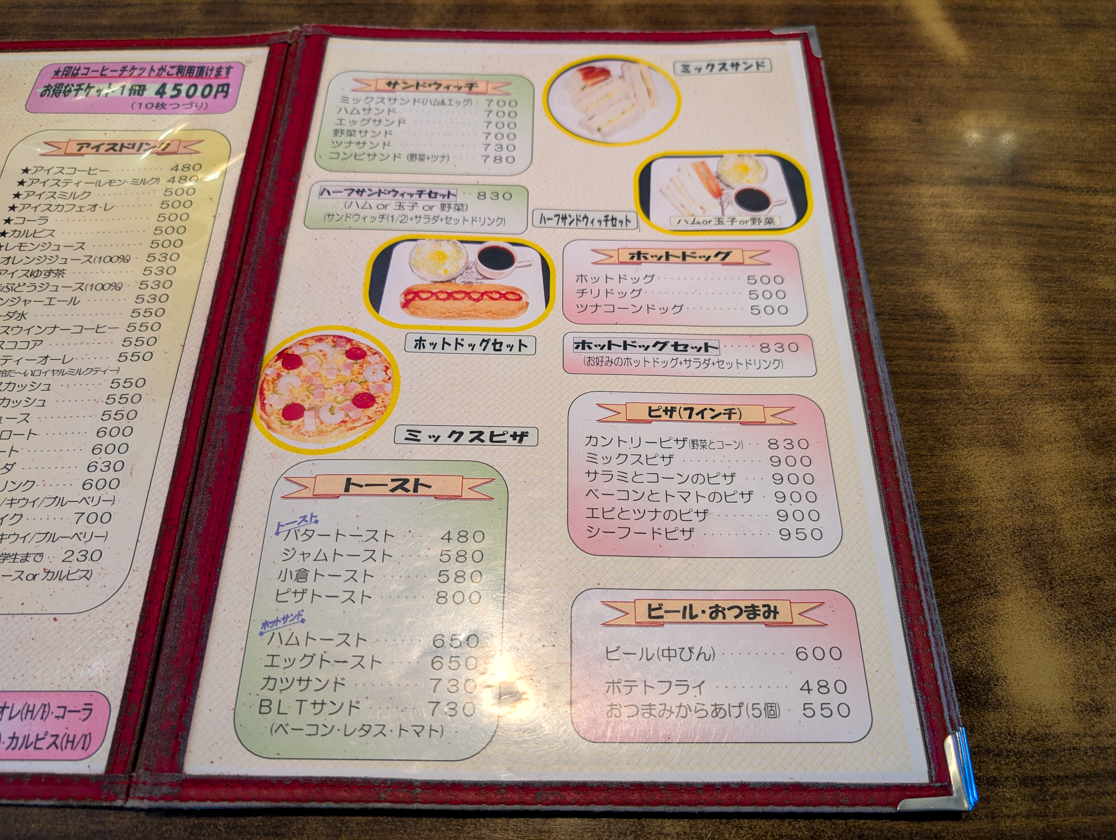 ★印はコーヒーチケットがご利用頂けます
お得なチケット1冊 4500円
(10枚つづり)
アイスドリンク
★アイスコーヒー 480
★アイスティー(レモン・ミルク) 480
★アイスミルク 500
★アイスカフェオ・レ 500
★コーラ 500
★カルピス 500
★レモンジュース 500
オレンジジュース(100%) 530
アイスゆず茶 530
ぶどうジュース(100%) 530
ンジャーエール 530
ーダ水 550
スウインナーコーヒー 550
スココア 550
ティーオーレ 550
ロイヤルミルクティー)
スカッシュ 550
カッシュ 550
ュース 550
ロート 600
ート 600
ダ 630
リンク 600
/キウイ/ブルーベリー)
イク 700
キウイ/ブルーベリー)
学生まで 230
ース or カルピス)
オレ(H/I)・コーラ
・カルピス(H/I)
サンドウィッチ
ミックスサンド(ハム&エッグ) 700
ハムサンド 700
エッグサンド 700
野菜サンド 700
ツナサンド 730
コンビサンド (野菜+ツナ) 780
ミックスサンド
ハーフサンドウィッチセット 830
(ハム or 玉子 or 野菜)
(サンドウィッチ(1/2)+サラダ+セットドリンク)
ハーフサンドウィッチセット
ハムor玉子or野菜
ホットドッグ
ホットドッグ 500
チリドッグ 500
ツナコーンドッグ 500
ホットドッグセット
ホットドッグセット 830
(お好みのホットドッグ+サラダ+セットドリンク)
ミックスピザ
ピザ(7インチ)
カントリーピザ(野菜とコーン) 830
ミックスピザ 900
サラミとコーンのピザ 900
ベーコンとトマトのピザ 900
エビとツナのピザ 900
シーフードピザ 950
トースト
トースト
バタートースト 480
ジャムトースト 580
小倉トースト 580
ピザトースト 800
ホットサンド
ハムトースト 650
エッグトースト 650
カツサンド 730
BLTサンド 730
(ベーコン・レタス・トマト)
ビール・おつまみ
ビール(中びん) 600
ポテトフライ 480
おつまみからあげ(5個) 550